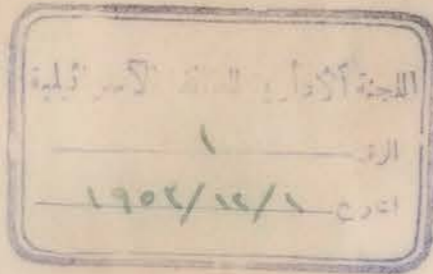 اللجنة الادارية للطائفة الاسرائيلية
الرقم ١
التاريخ ١٩٥٢/١٢/١